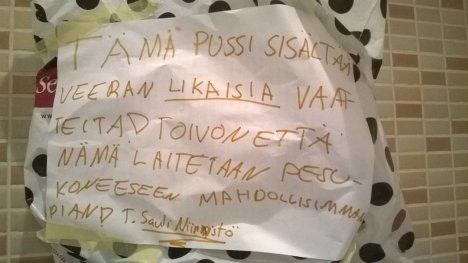 TÄMÄ PUSSI SISÄLTÄÄ
Se
VEERAN LIKAISIA VAAT
www.
TEITA TOIVON ETTÄ
NÄMÄ LAITETAAN PESU-
KONEESEEN MAHDOLLISIMMAN
PIAN T. Sauli Niinistö